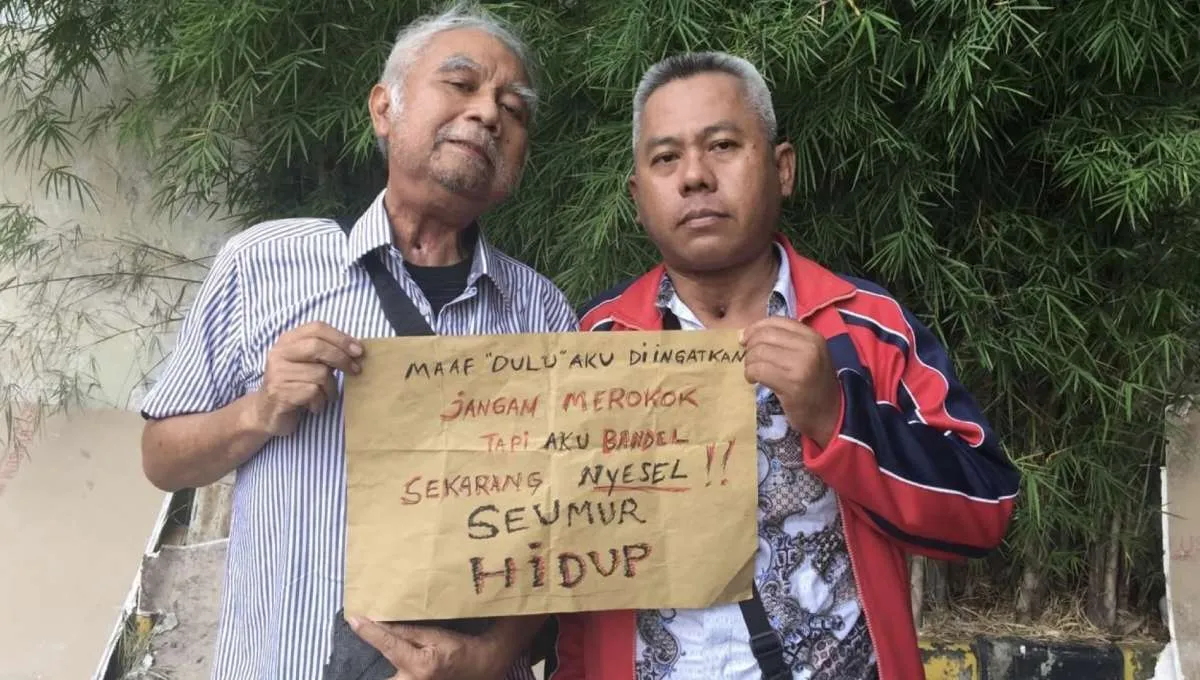 MAAF "DULU" AKU DIINGATKAN
JANGAM MEROKOK
TAPI AKU BANDEL
SEKARANG NYESEL !!
SEUMUR
HIDUP